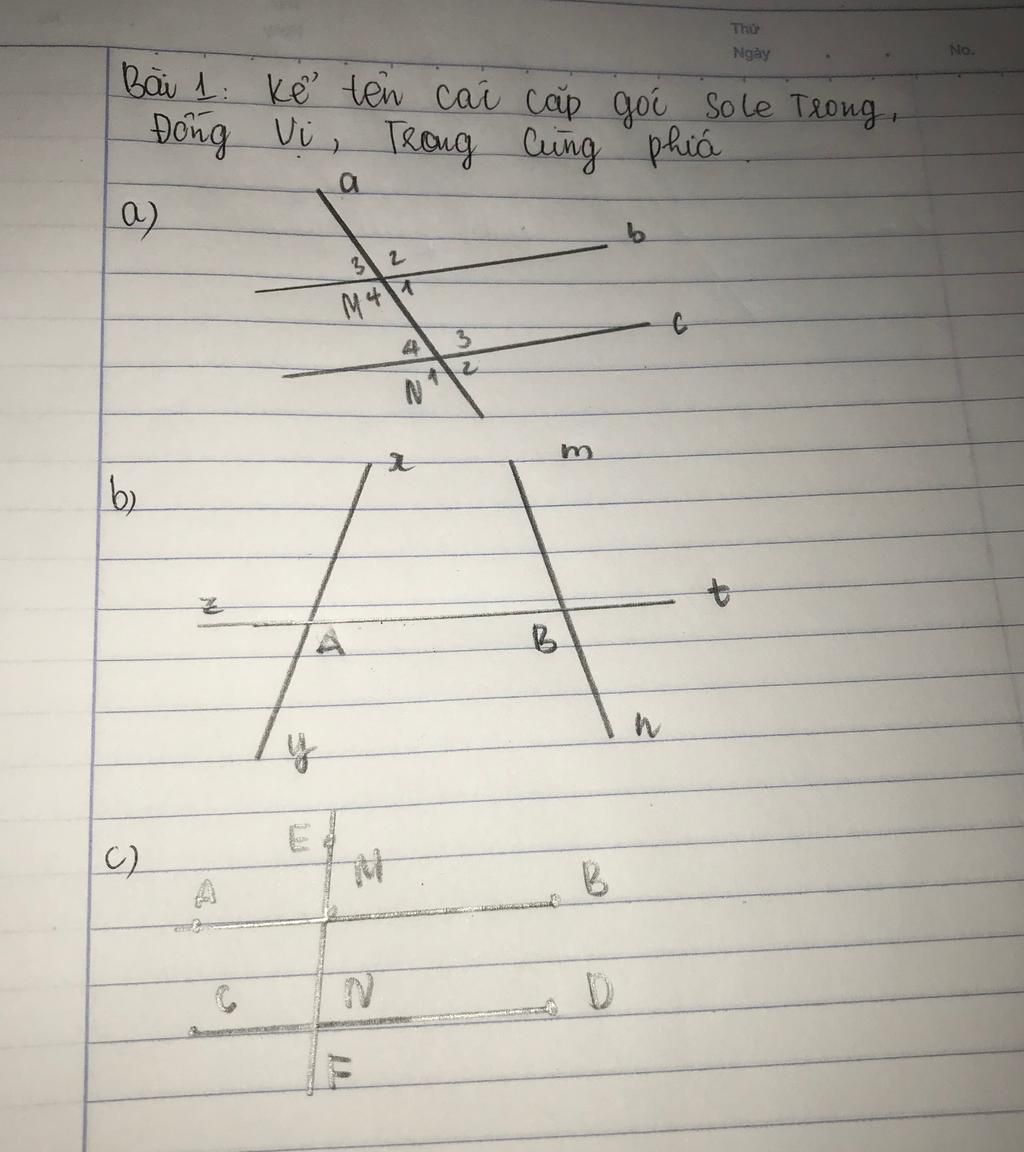 Thứ
Ngày . . No.
Bài 1: Kể tên các cặp góc Sole Trong,
Đồng Vị, Trong Cùng phía
a)
a
b
3 2
M 4 1
c
4 3
N 1 2
b)
x m
z t
A B
y n
c)
E
A M B
C N D
F